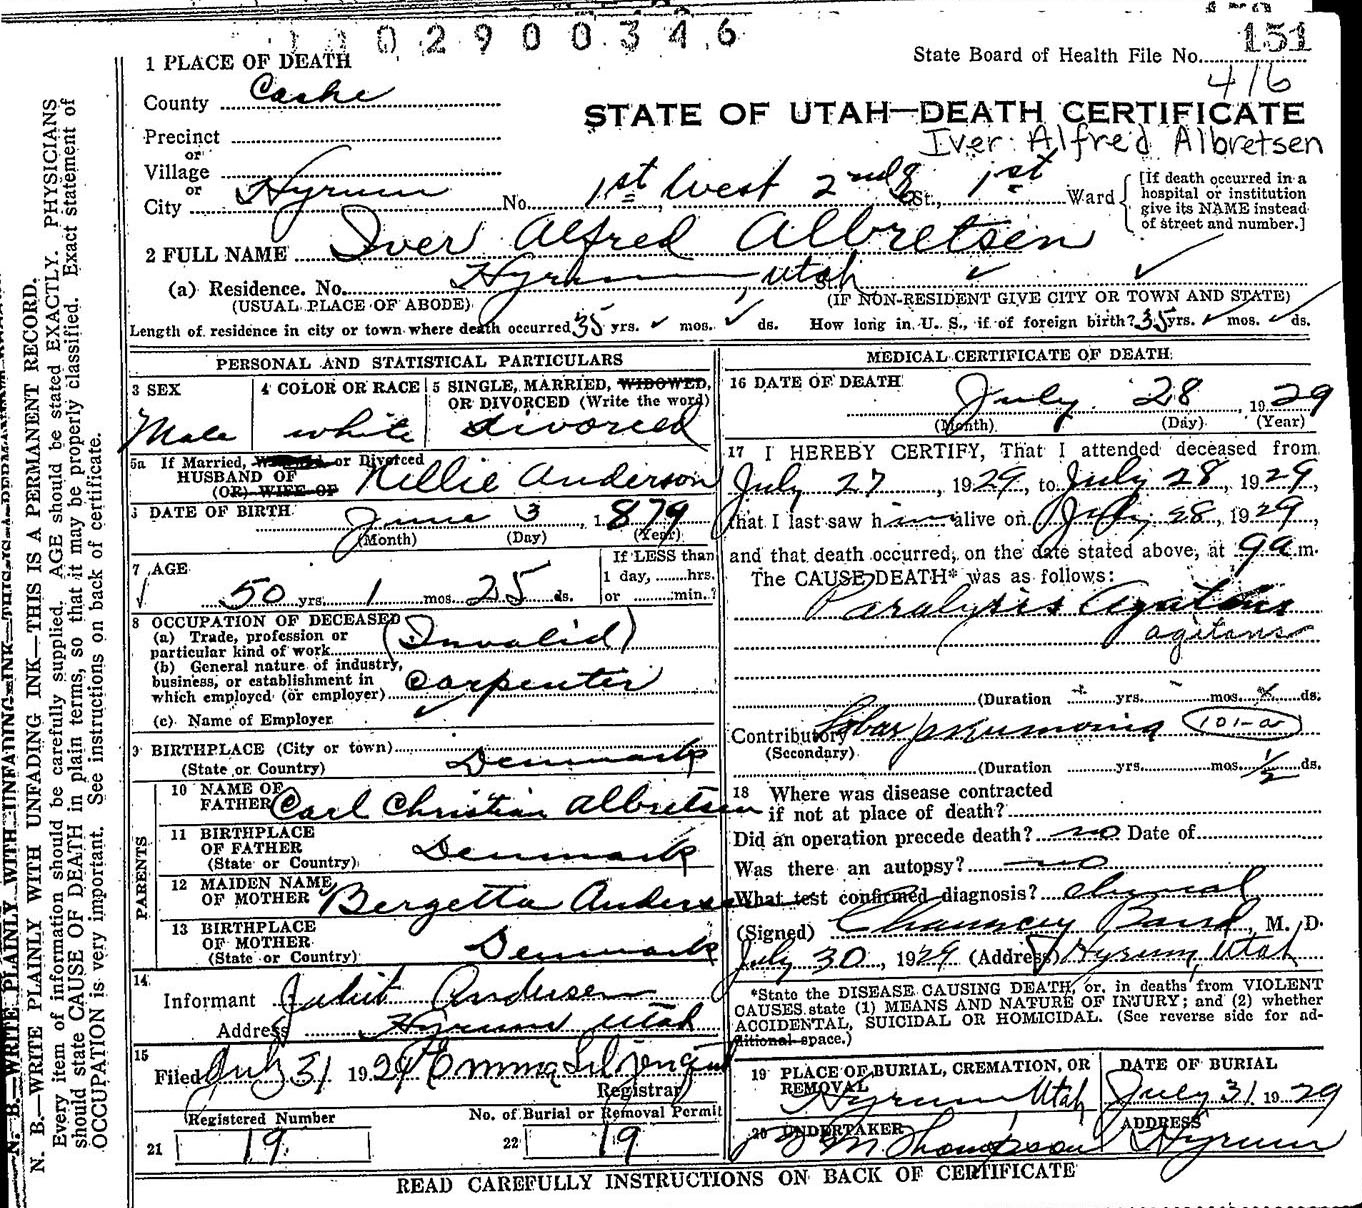 1 1 0 2 9 0 0 3 4 6
151
State Board of Health File No.
416
1 PLACE OF DEATH
County Cache
STATE OF UTAH—DEATH CERTIFICATE
Iver Alfred Albretsen
Precinct
or
Village
or
City Hyrum No. 1st West 2nd S St., 1st Ward
[If death occurred in a hospital or institution give its NAME instead of street and number.]
2 FULL NAME Iver Alfred Albretsen
(a) Residence. No. Hyrum, Utah
(USUAL PLACE OF ABODE) (IF NON-RESIDENT GIVE CITY OR TOWN AND STATE)
Length of residence in city or town where death occurred 35 yrs. mos. ds. How long in U. S., if of foreign birth? 35 yrs. mos. ds.
PERSONAL AND STATISTICAL PARTICULARS
3 SEX
Male
4 COLOR OR RACE
white
5 SINGLE, MARRIED, WIDOWED,
OR DIVORCED (Write the word)
Divorced
5a If Married, Widowed, or Divorced
HUSBAND OF
(OR) WIFE OF Nellie Anderson
6 DATE OF BIRTH June 3, 1879
(Month) (Day) (Year)
7 AGE
50 yrs. 1 mos. 25 ds.
If LESS than
1 day, hrs.
or min.?
8 OCCUPATION OF DECEASED
(a) Trade, profession or
particular kind of work (Invalid)
(b) General nature of industry,
business, or establishment in
which employed (or employer) Carpenter
(c) Name of Employer
9 BIRTHPLACE (City or town)
(State or Country) Denmark
PARENTS
10 NAME OF
FATHER Carl Christian Albretsen
11 BIRTHPLACE
OF FATHER
(State or Country) Denmark
12 MAIDEN NAME
OF MOTHER Bergetta Andersen
13 BIRTHPLACE
OF MOTHER
(State or Country) Denmark
14
Informant Juliet Andersen
Address Hyrum Utah
15
Filed July 31 1929 Emma
Registrar
Registered Number
21 19
No. of Burial or Removal Permit
22 19
MEDICAL CERTIFICATE OF DEATH
16 DATE OF DEATH
July 28 1929
(Month) (Day) (Year)
17 I HEREBY CERTIFY, That I attended deceased from
July 27, 1929, to July 28, 1929,
that I last saw him alive on July 28, 1929,
and that death occurred, on the date stated above, at 9 a m.
The CAUSE DEATH* was as follows:
Paralysis Agitans
agitans
(Duration yrs. mos. ds.
Contributory Lobar pneumonia 101-a
(Secondary)
(Duration yrs. mos. 1/2 ds.
18 Where was disease contracted
if not at place of death?
Did an operation precede death? no Date of
Was there an autopsy? no
What test confirmed diagnosis?
(Signed) Chauncey M. D.
July 30, 1929 (Address) Hyrum, Utah
*State the DISEASE CAUSING DEATH, or, in deaths from VIOLENT
CAUSES state (1) MEANS AND NATURE OF INJURY; and (2) whether
ACCIDENTAL, SUICIDAL OR HOMICIDAL. (See reverse side for ad-
ditional space.)
19 PLACE OF BURIAL, CREMATION, OR
REMOVAL
Hyrum Utah
DATE OF BURIAL
July 31 1929
20 UNDERTAKER
M Thompson
ADDRESS
Hyrum
READ CAREFULLY INSTRUCTIONS ON BACK OF CERTIFICATE
N. B.—WRITE PLAINLY WITH UNFADING INK—THIS IS A PERMANENT RECORD.
Every item of information should be carefully supplied. AGE should be stated EXACTLY. PHYSICIANS
should state CAUSE OF DEATH in plain terms, so that it may be properly classified. Exact statement of
OCCUPATION is very important. See instructions on back of certificate.